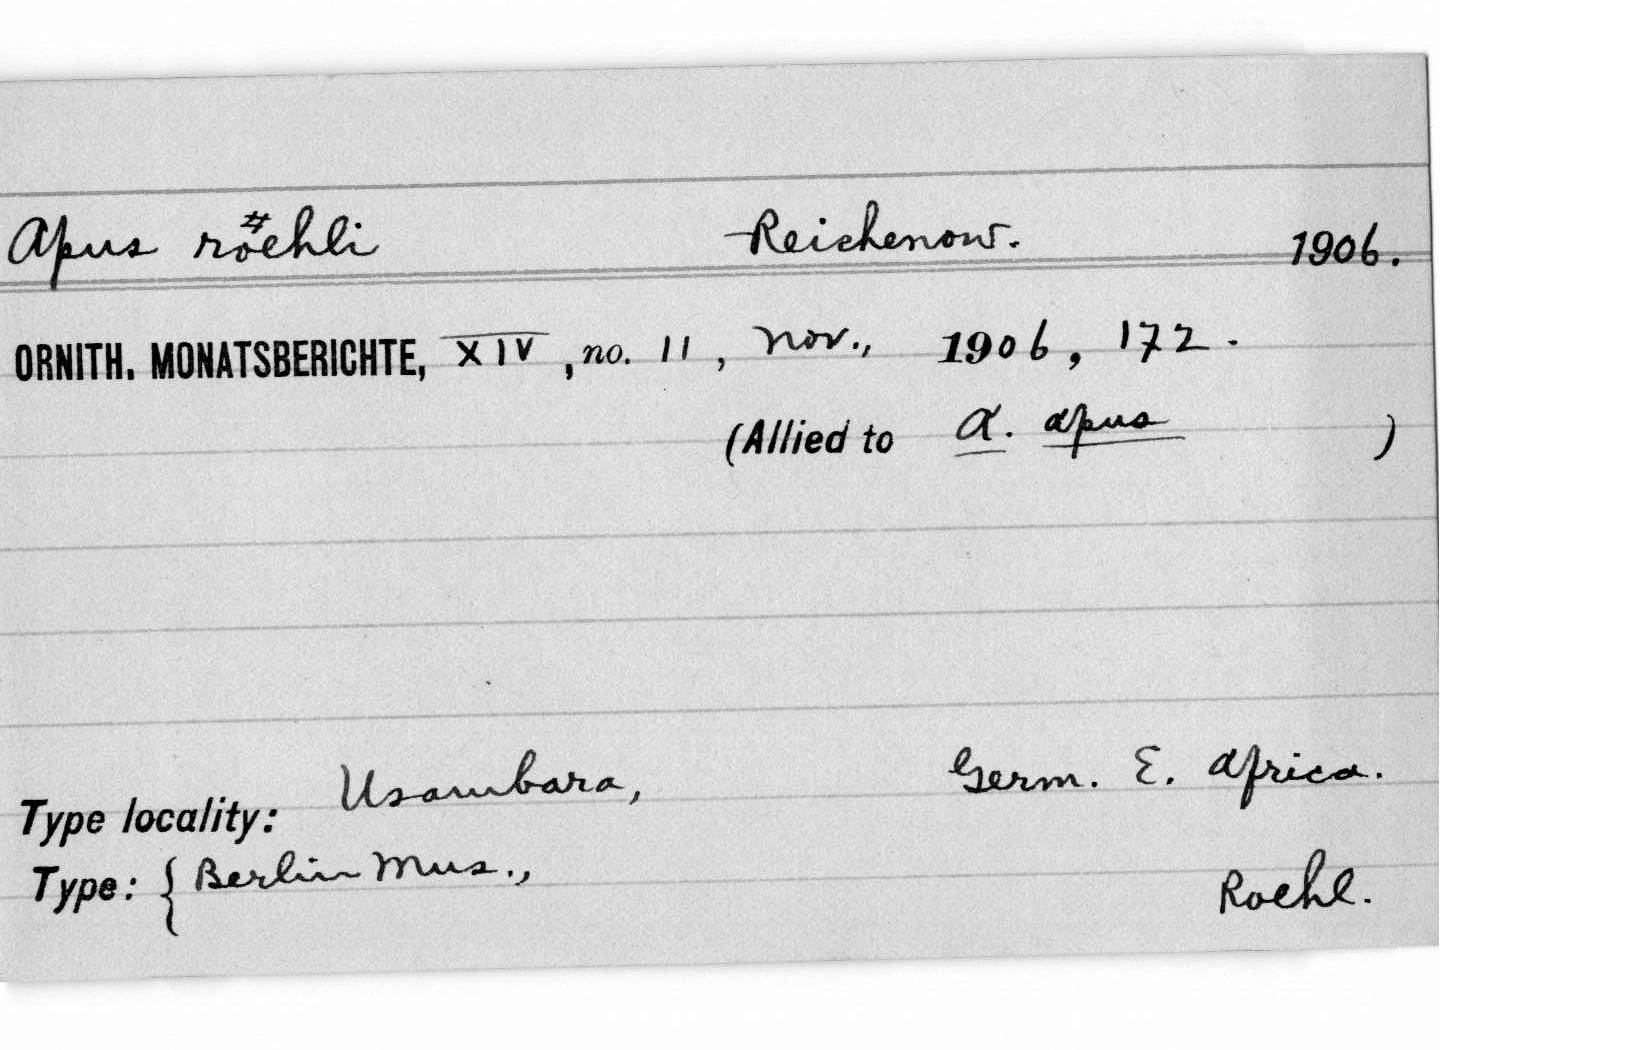 Apus röehli Reichenow. 1906.
ORNITH. MONATSBERICHTE, XIV, no. 11, Nov., 1906, 172.
(Allied to A. apus )
Type locality: Usambara, Germ. E. Africa.
Type: { Berlin Mus., Roehl.